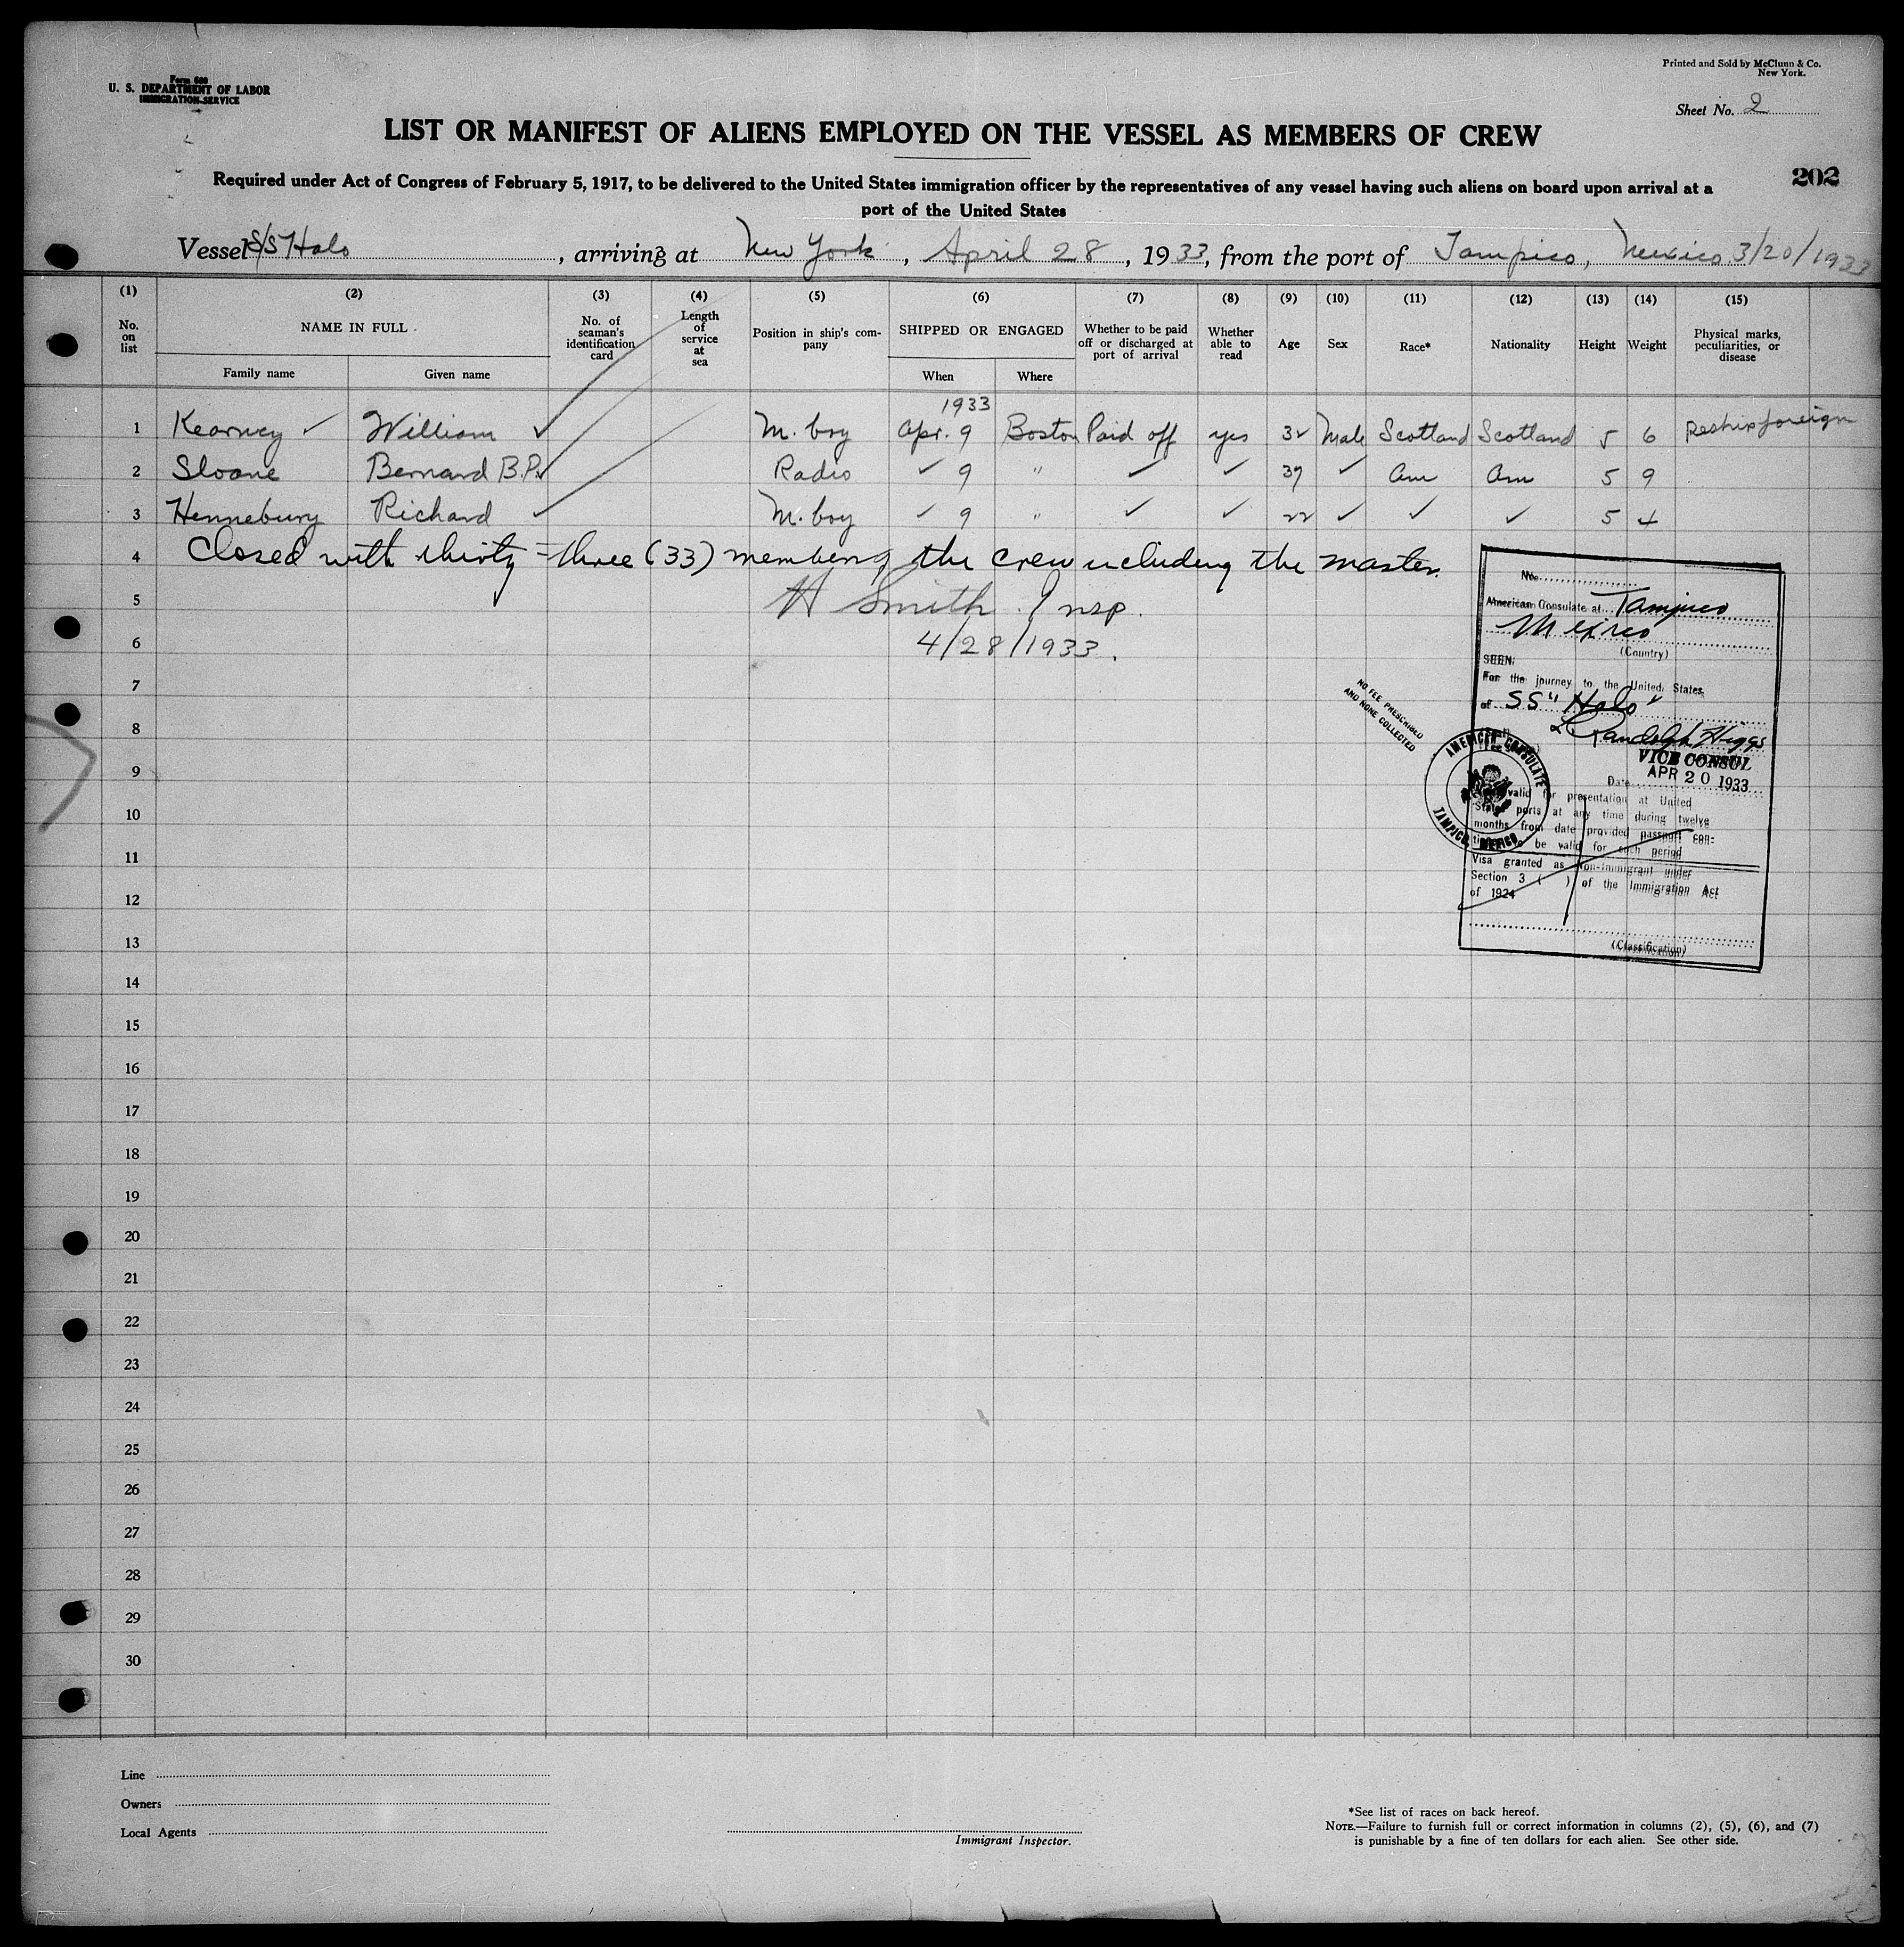 Form 680
U. S. DEPARTMENT OF LABOR
IMMIGRATION SERVICE
Printed and Sold by McClunn & Co.
New York.
Sheet No. 2
LIST OR MANIFEST OF ALIENS EMPLOYED ON THE VESSEL AS MEMBERS OF CREW
202
Required under Act of Congress of February 5, 1917, to be delivered to the United States immigration officer by the representatives of any vessel having such aliens on board upon arrival at a
port of the United States
Vessel S/S Halo, arriving at New York, April 28, 1933, from the port of Tampico, Mexico 3/20/1933
(1) (2) (3) (4) (5) (6) (7) (8) (9) (10) (11) (12) (13) (14) (15)
No. on list
NAME IN FULL
Family name
Given name
No. of seaman's identification card
Length of service at sea
Position in ship's company
SHIPPED OR ENGAGED
When
Where
Whether to be paid off or discharged at port of arrival
Whether able to read
Age
Sex
Race*
Nationality
Height
Weight
Physical marks, peculiarities, or disease
1933
1 Kearney ✓ William ✓ M. boy Apr. 9 Boston Paid off yes 32 Male Scotland Scotland 5 6 Reship foreign
2 Sloane Bernard B.P. ✓ Radio ✓ 9 " ✓ ✓ 37 ✓ Am Am 5 9
3 Hennebury Richard ✓ M. boy ✓ 9 " ✓ ✓ 22 ✓ ✓ ✓ 5 4
4 Closed with thirty-three (33) members of the crew including the master.
5 H Smith Insp.
6 4/28/1933.
7
8
9
10
11
12
13
14
15
16
17
18
19
20
21
22
23
24
25
26
27
28
29
30
No.
American Consulate at Tampico
Mexico
(Country)
SEEN:
For the journey to the United States
of SS "Halo"
Randolph Higgs
VICE CONSUL
Date APR 20 1933
valid for presentation at United
States ports at any time during twelve
months from date provided passport con-
tinues to be valid for such period
Visa granted as Non-immigrant under
Section 3 ( ) of the Immigration Act
of 1924
(Classification)
NO FEE PRESCRIBED
AND NONE COLLECTED
AMERICAN CONSULATE
TAMPICO, MEXICO
Line
Owners
Local Agents
Immigrant Inspector.
*See list of races on back hereof.
NOTE.—Failure to furnish full or correct information in columns (2), (5), (6), and (7)
is punishable by a fine of ten dollars for each alien. See other side.